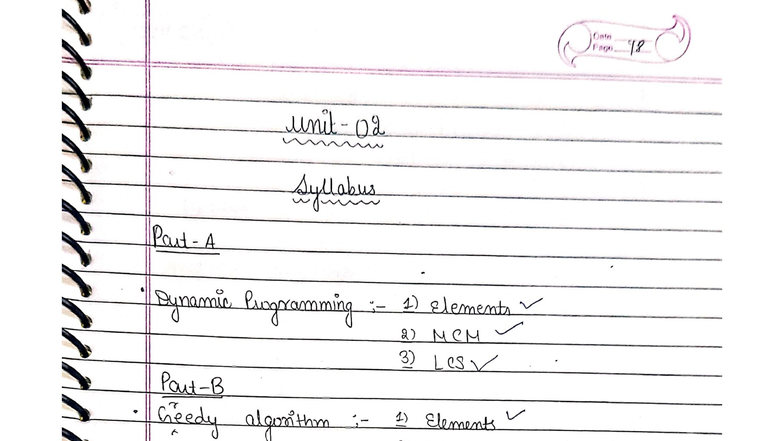 Date
Page 48
Unit-02
Syllabus
Part-A
Dynamic Programming :- 1) Elements ✓
2) MCM ✓
3) LCS ✓
Part-B
Greedy algorithm :- 1) Elements ✓